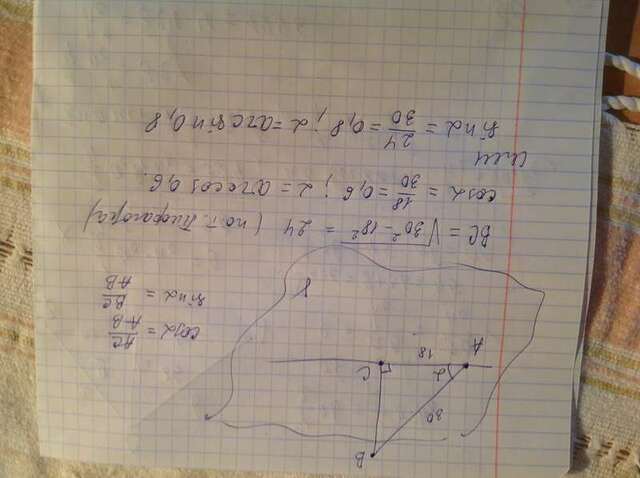 B
30
α
C
A
18
γ
cosα = AC/AB
sinα = BC/AB
BC = √30² - 18² = 24 (по т. Пифагора)
cosα = 18/30 = 0,6 ; α = arccos 0,6.
или
sinα = 24/30 = 0,8 ; α = arcsin 0,8